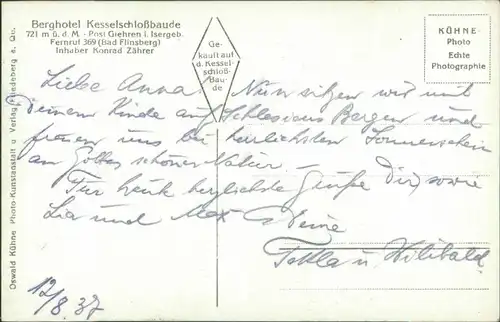 Berghotel Kesselschloßbaude
721 m ü. d. M. - Post Giehren i. Isergeb.
Fernruf 369 (Bad Flinsberg)
Inhaber Konrad Zährer
Ge-
kauft auf
d. Kessel-
schloß-
Bau-
de
KÜHNE-
Photo
Echte
Photographie
Oswald Kühne Photo-Kunstanstalt u. Verlag Friedeberg a. Qu.
Liebe Anna! Nun sitzen wir mit
Deinem Kinde auf Schlesiens Bergen und
freuen uns bei herrlichstem Sonnenschein
an Gottes schöner Natur –
Für heute herzlichste Grüße Dir, sowie
Lia und Max Deine
Tekla u. Wilibald.
12/8. 37